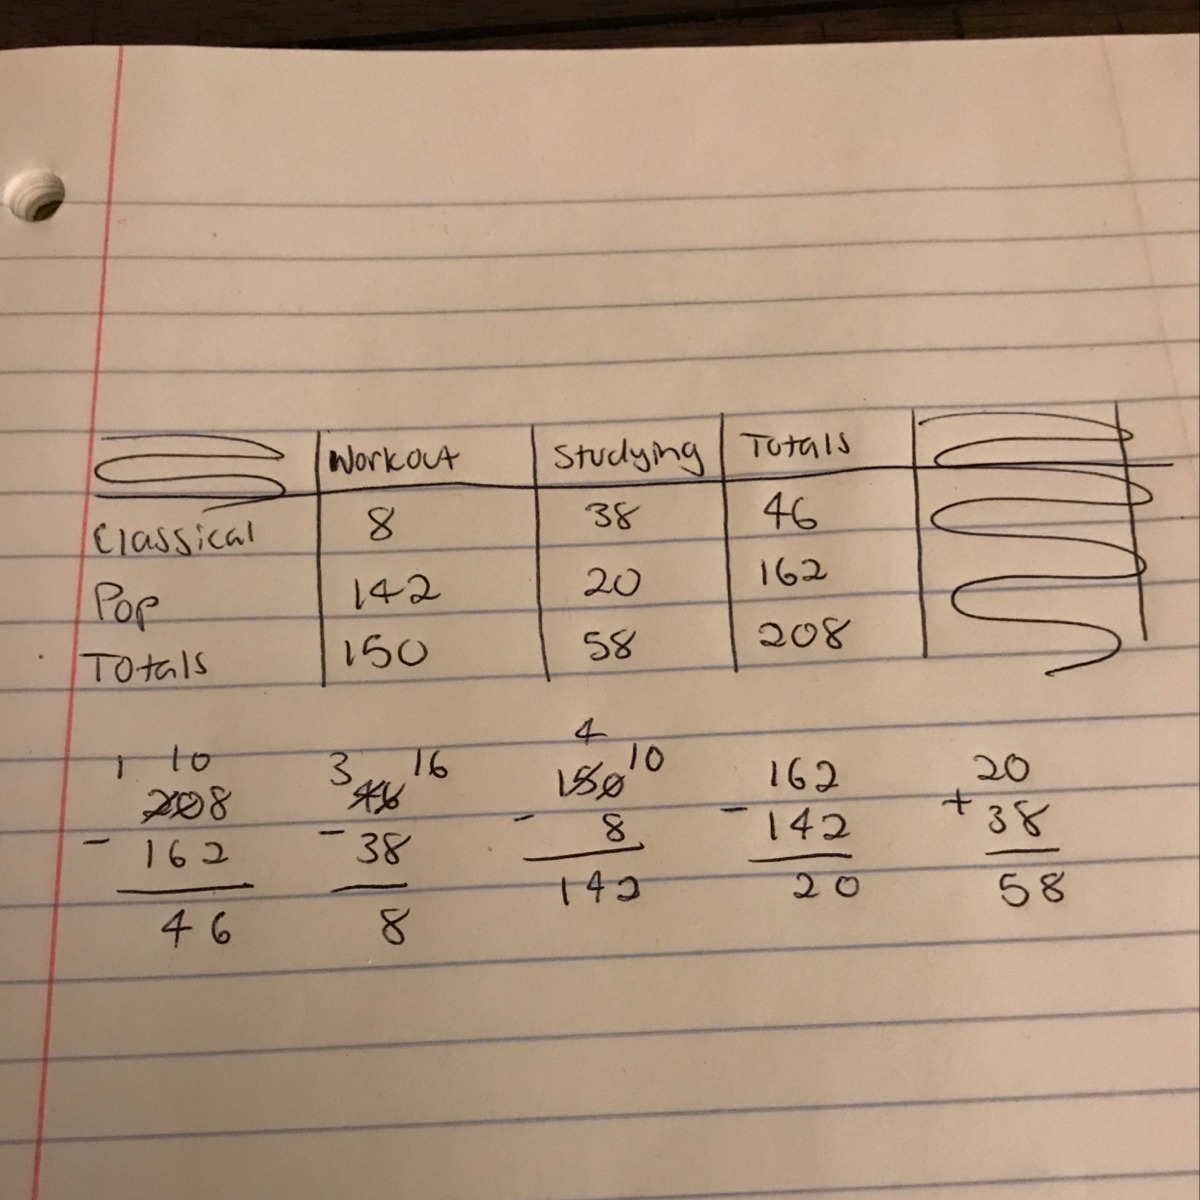 Workout Studying Totals
Classical 8 38 46
Pop 142 20 162
Totals 150 58 208
4
1 10 3 16 10
208 46 150 162 20
- 162 - 38 - 8 - 142 + 38
46 8 142 20 58